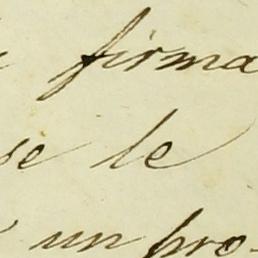 firma
se le
un pro-